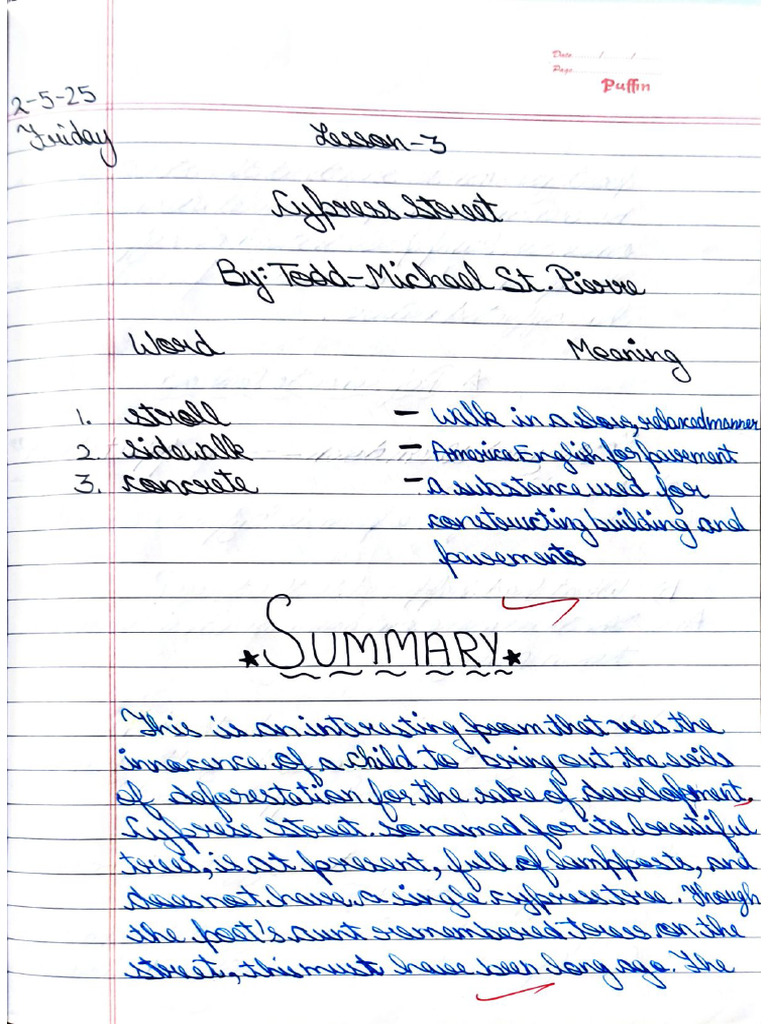 Date / /
Page
Puffin
2-5-25
Friday
Lesson-3
Cypress Street
By: Todd-Michael St. Pierre
Word Meaning
1. stroll - walk in a slow, relaxed manner
2. sidewalk - America English for pavement
3. concrete - a substance used for
constructing building and
pavements
SUMMARY
This is an interesting poem that uses the
innocence of a child to bring out the evils
of deforestation for the sake of development.
Cypress Street so named for its beautiful
trees, is at present, full of lampposts, and
does not have a single cypress tree. Though
the poet's aunt remembered trees on the
street, this must have been long ago. The